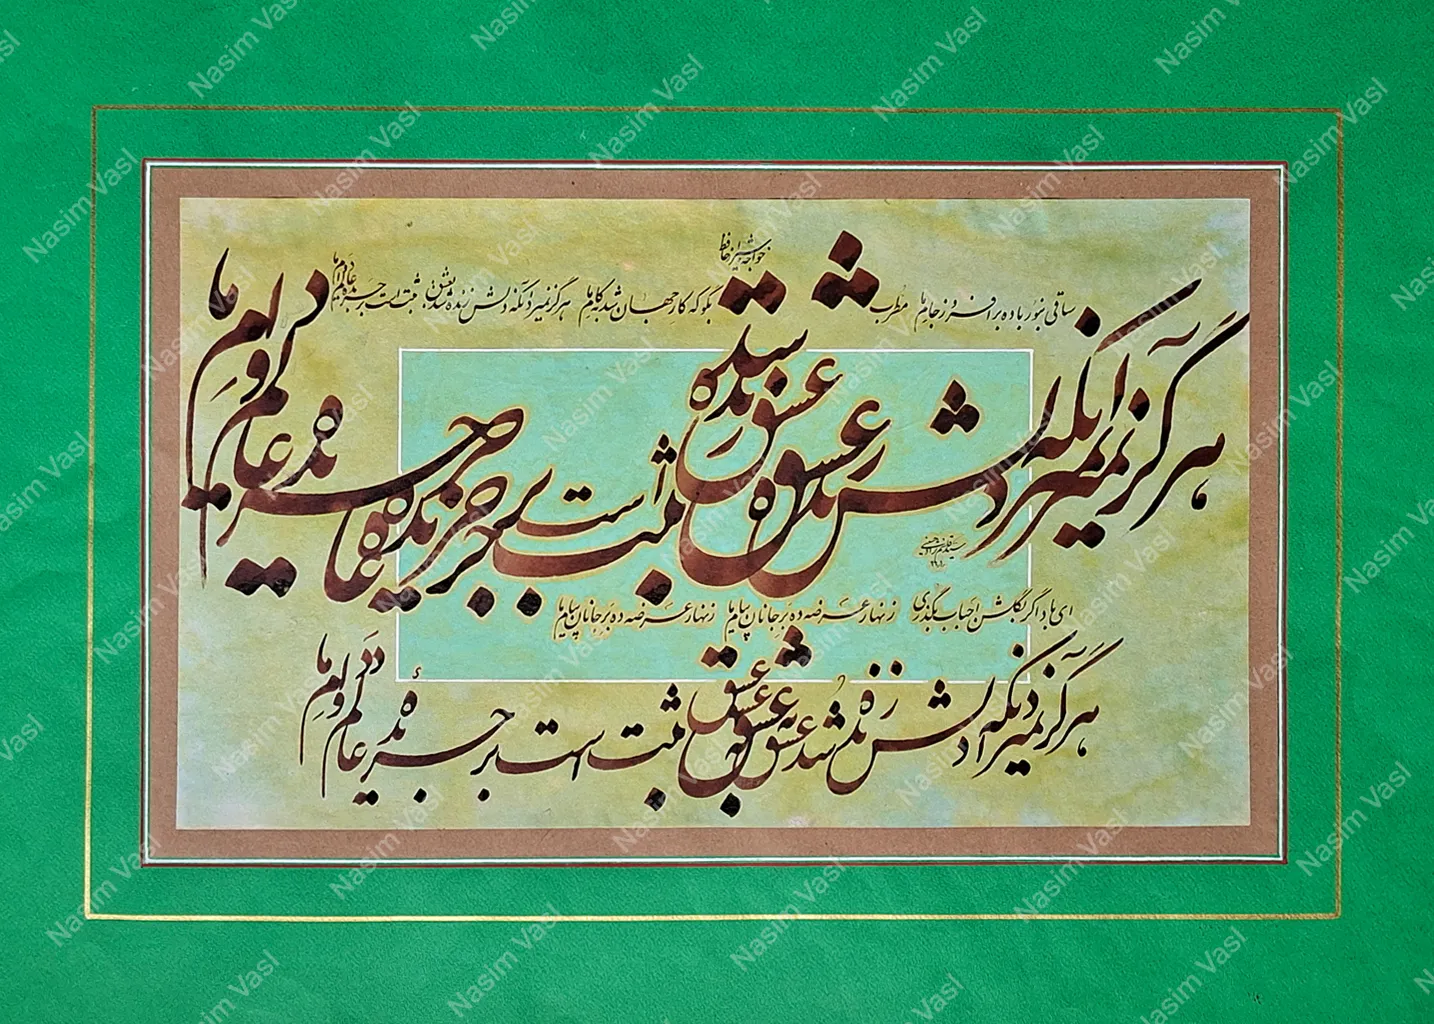 خواجه شیراز حافظ
ساقی بنور باده برافروز جام ما مطرب بگو که کار جهان شد بکام ما هرگز نمیرد آنکه دلش زنده شد بعشق ثبت است بر جریده عالم دوام ما
هرگز نمیرد آنکه دلش زنده شد بعشق ثبت است بر جریده عالم دوام ما
ای باد اگر بگلشن احباب بگذری زنهار عرضه ده بر جانان پیام ما زنهار عرضه ده بر جانان پیام ما
هرگز نمیرد آنکه دلش زنده شد بعشق ثبت است بر جریدهٔ عالم دوام ما
Nasim Vasl